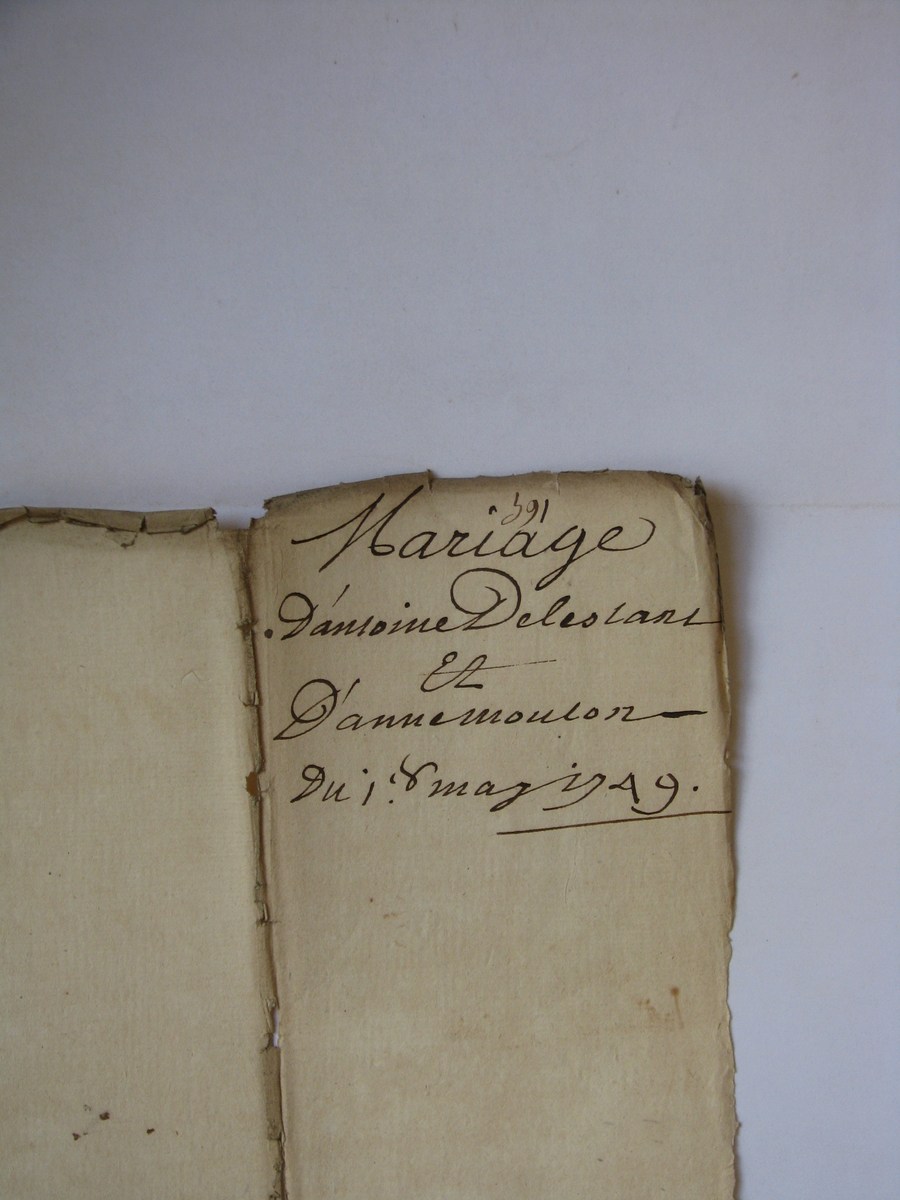 Mariage
D'antoine Delestant
Et
D'anne mouton
Du 1.er may 1749.